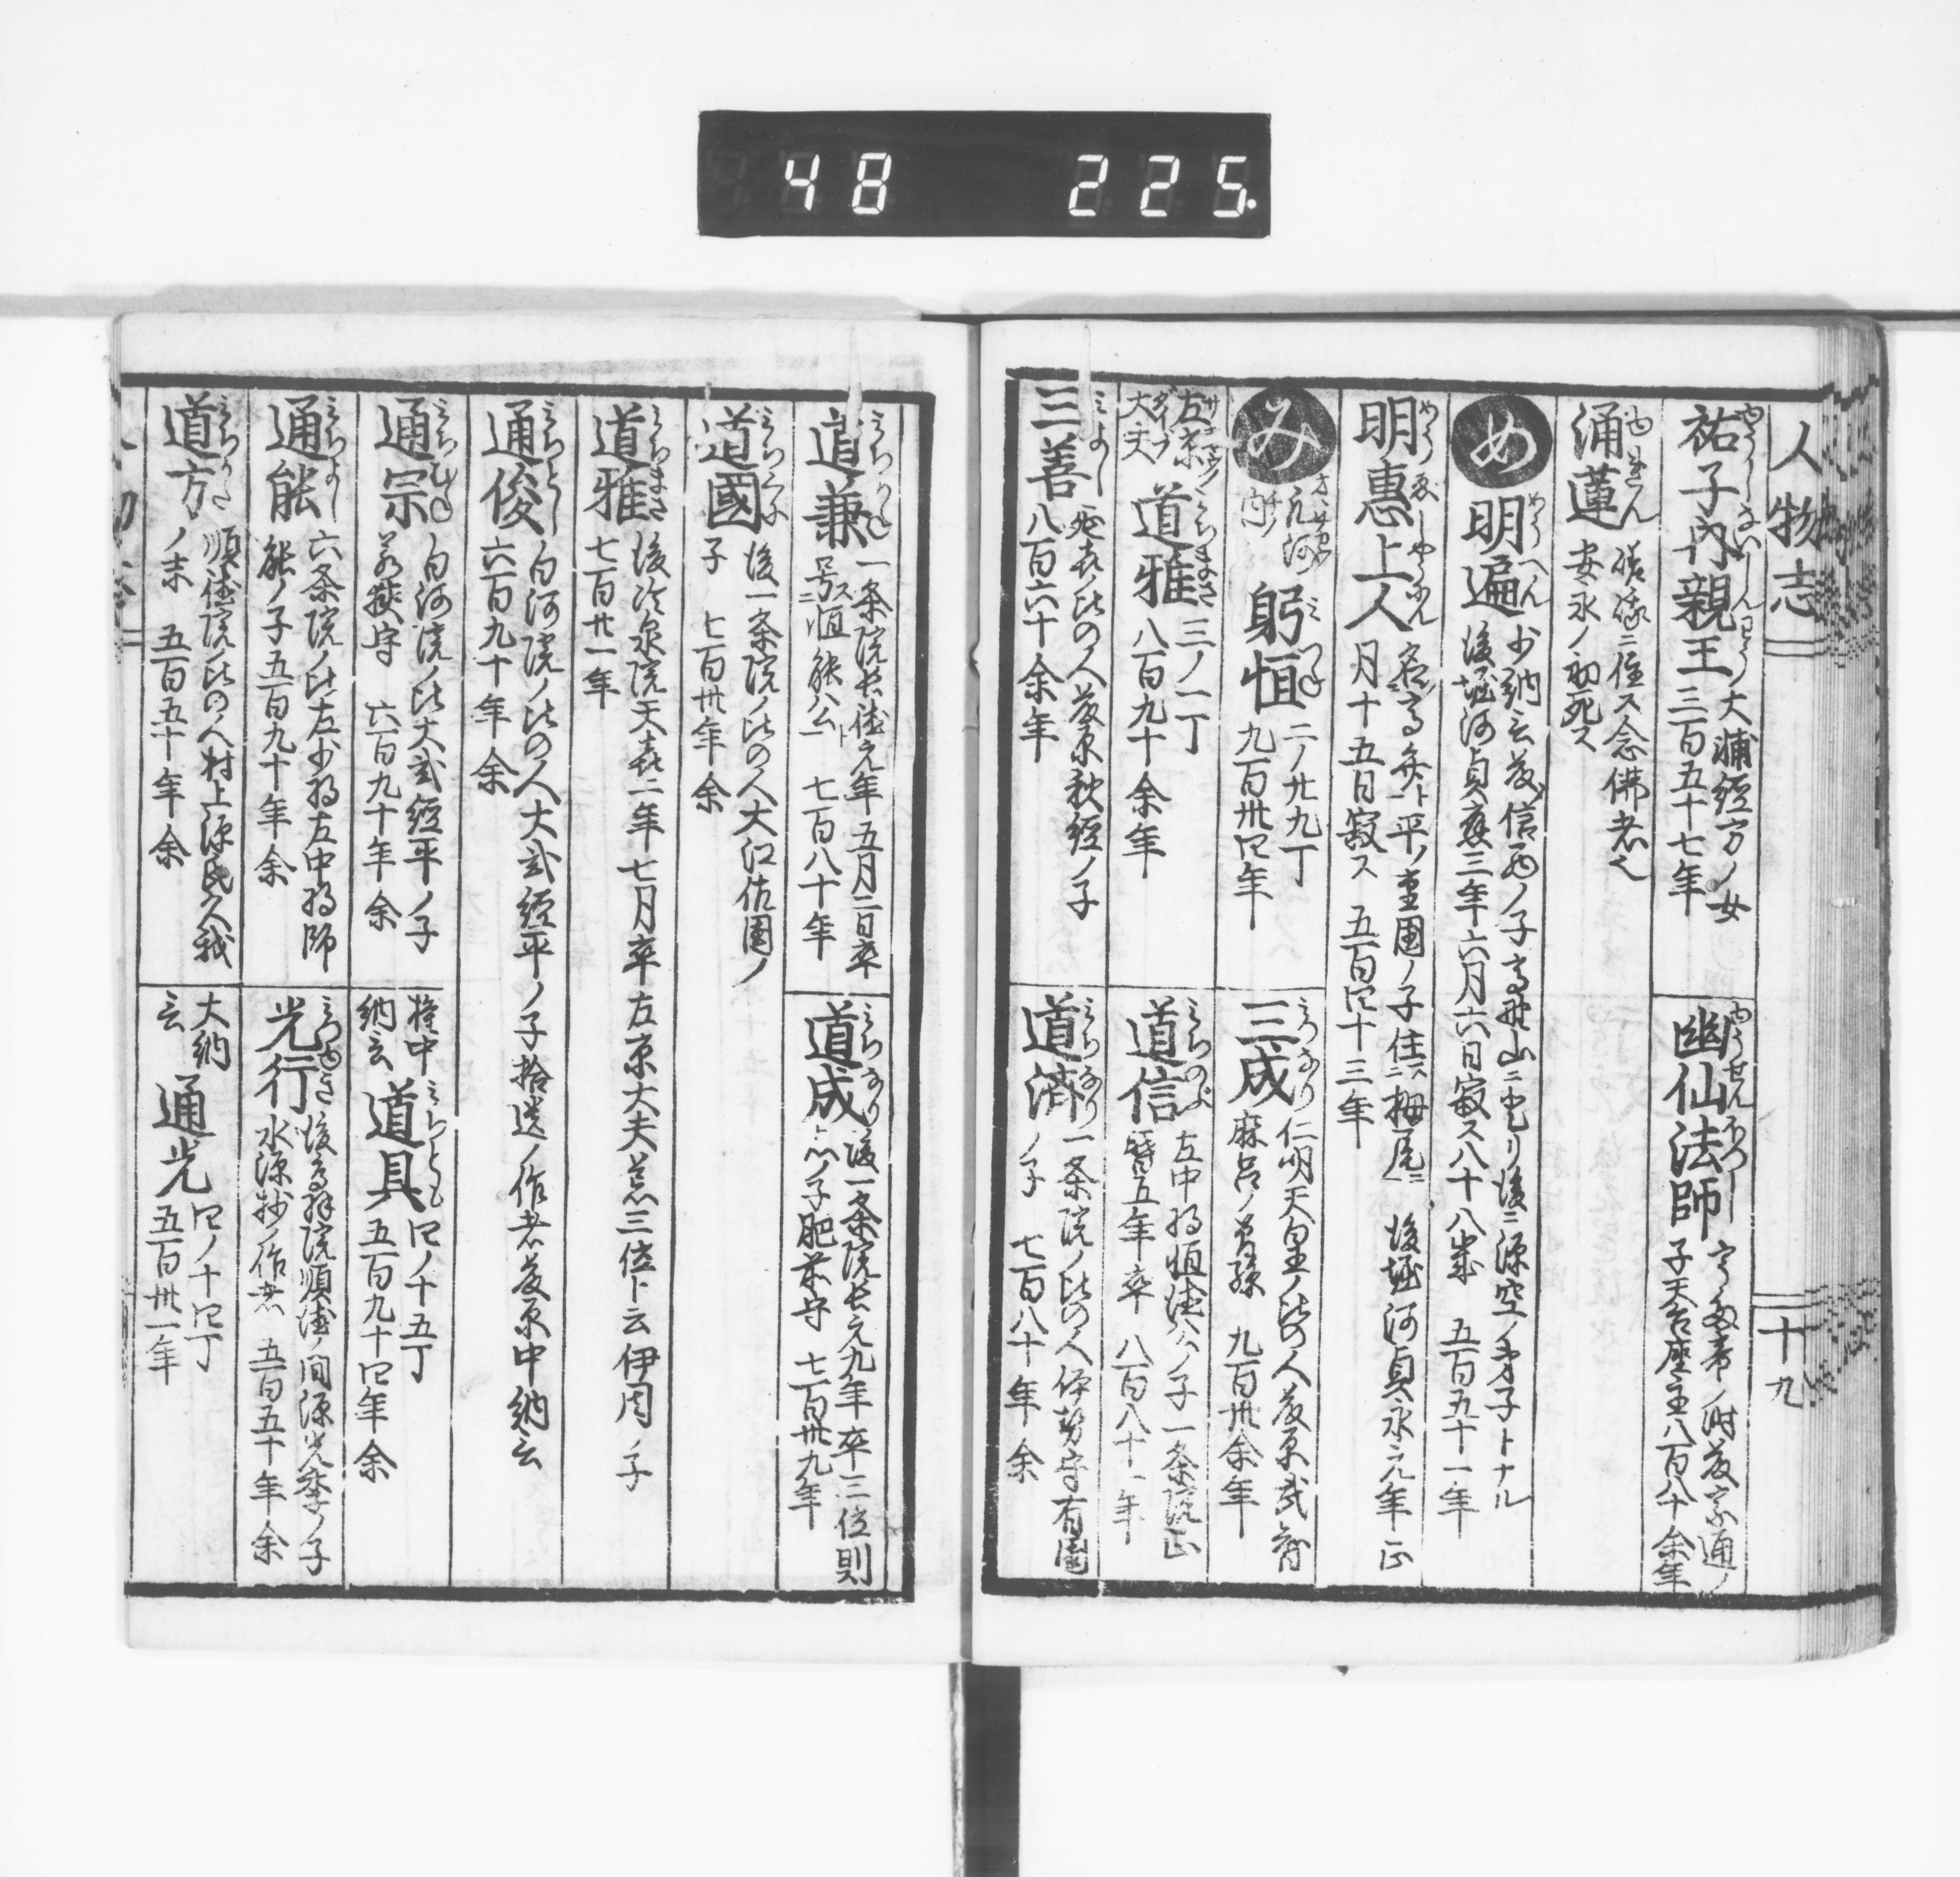 48 225.
人物志
十九
祐子内親王 大補經方ノ女
三百五十七年
幽仙法師
子天台座主八百八十余年
涌蓮 嵯峨ニ住ス念佛者也
安永ノ初死ス
め
明遍 少納言信西ノ子高野山ニ
後ニ源空ノ弟子トナル
後堀河貞應三年六月六日寂ス八十八歳 五百五十一年
明惠上人
平ノ重國ノ子住ス栂尾ニ 後堀河貞永元年正
月十五日寂ス 五百四十三年
み
躬恒 二ノ廿九丁
九百卅四年
三成 仁明天皇ノ比の人
麻呂ノ曽孫 九百卅余年
左京大夫
道雅 三ノ一丁
八百九十余年
道信 左中将恒徳公ノ子一条院正
暦五年卒 八百八十一年
三善 延喜比の人藤原秋經ノ子
八百六十余年
道済 一条院ノ比の人伊勢守有國
ノ子 七百八十年余
道兼 一条院長徳元年五月二日卒
七百八十年
道成 後一条院長元九年卒三位則
ノ子肥前守 七百卅九年
道國 後一条院ノ比の人大江佐國ノ
子 七百卅年余
道雅 後冷泉院天喜二年七月卒左京大夫荒三位ト云伊周ノ子
七百廿一年
通俊 白河院ノ比の人大弐經平ノ子拾遺ノ作者藤原中納言
六百九十年余
通宗 白河院ノ比大弐經平ノ子
若狭守 六百九十年余
權中納言
道具 四ノ十五丁
五百九十四年余
通能 六条院ノ比左少将左中将師
能ノ子五百九十年余
光行 後鳥羽院順徳ノ間源光季ノ子
水源抄ノ作者 五百五十年余
道方 順徳院比の人村上源氏久我
ノ末 五百五十年余
大納言
通光 四ノ十四丁
五百卅一年